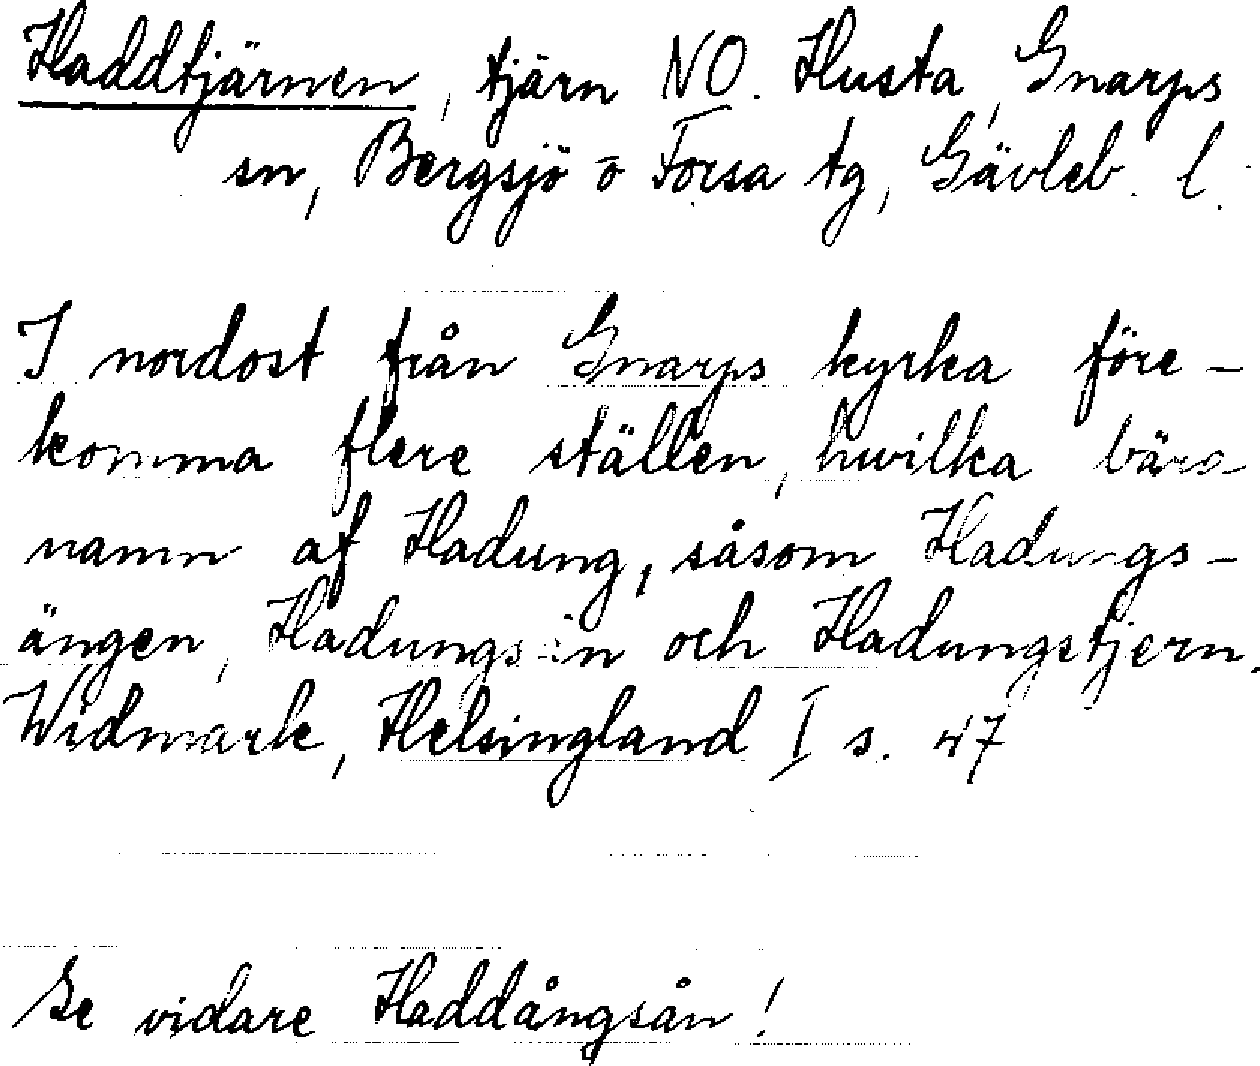 Haddtjärnen, tjärn NO. Husta, Gnarps
sn, Bergsjö o Forsa tg, Gävleb. l.
I nordost från Gnarps kyrka före-
komma flere ställen, hwilka bära
namn af Hadung, såsom Hadungs-
ängen, Hadungsån och Hadungstjern.
Widmark, Helsingland I s. 47
Se vidare Haddångsån!